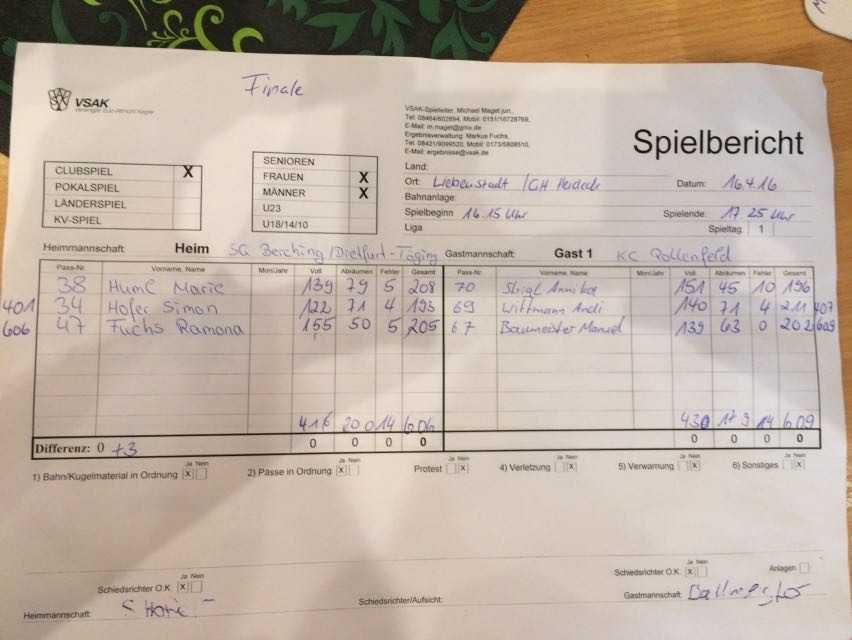 Finale
VSAK
VSAK-Spielleiter: Michael Maget jun.,
Tel: 08464/602694, Mobil: 0151/16728769,
E-Mail: m.maget@gmx.de
Ergebnisverwaltung: Markus Fuchs,
Tel. 08421/9099520, Mobil: 0173/5808510,
E-Mail: ergebnisse@vsak.de
Spielbericht
CLUBSPIEL X
POKALSPIEL
LÄNDERSPIEL
KV-SPIEL
SENIOREN
FRAUEN X
MÄNNER X
U23
U18/14/10
Land:
Ort: Liebenstadt /GH Heideck Datum: 16.4.16
Bahnanlage:
Spielbeginn 16.15 Uhr Spielende: 17.25 Uhr
Liga Spieltag: 1
Heimmannschaft: Heim SG Berching/Dietfurt-Töging Gastmannschaft: Gast 1 KC Pollenfeld
Pass-Nr. Vorname, Name Mon/Jahr Voll Abräumen Fehler Gesamt Pass-Nr. Vorname, Name Mon/Jahr Voll Abräumen Fehler Gesamt
38 Huml Marie 139 79 5 208 70 Strigl Annika 151 45 10 196
401 34 Hofer Simon 122 71 4 193 69 Wittmann Andi 140 71 4 211 407
606 47 Fuchs Ramona 155 50 5 205 67 Baumeister Manuel 139 63 0 202 609
416 200 14 606 430 179 14 609
Differenz: 0 +3 0 0 0 0 0 0 0 0
1) Bahn/Kugelmaterial in Ordnung Ja Nein X 2) Pässe in Ordnung Ja Nein X Protest Ja Nein X 4) Verletzung Ja Nein X 5) Verwarnung Ja Nein X 6) Sonstiges Ja Nein X
Schiedsrichter O.K. Ja Nein X Schiedsrichter O.K. Ja Nein X Anlagen
Heimmannschaft: Schiedsrichter/Aufsicht: Gastmannschaft: